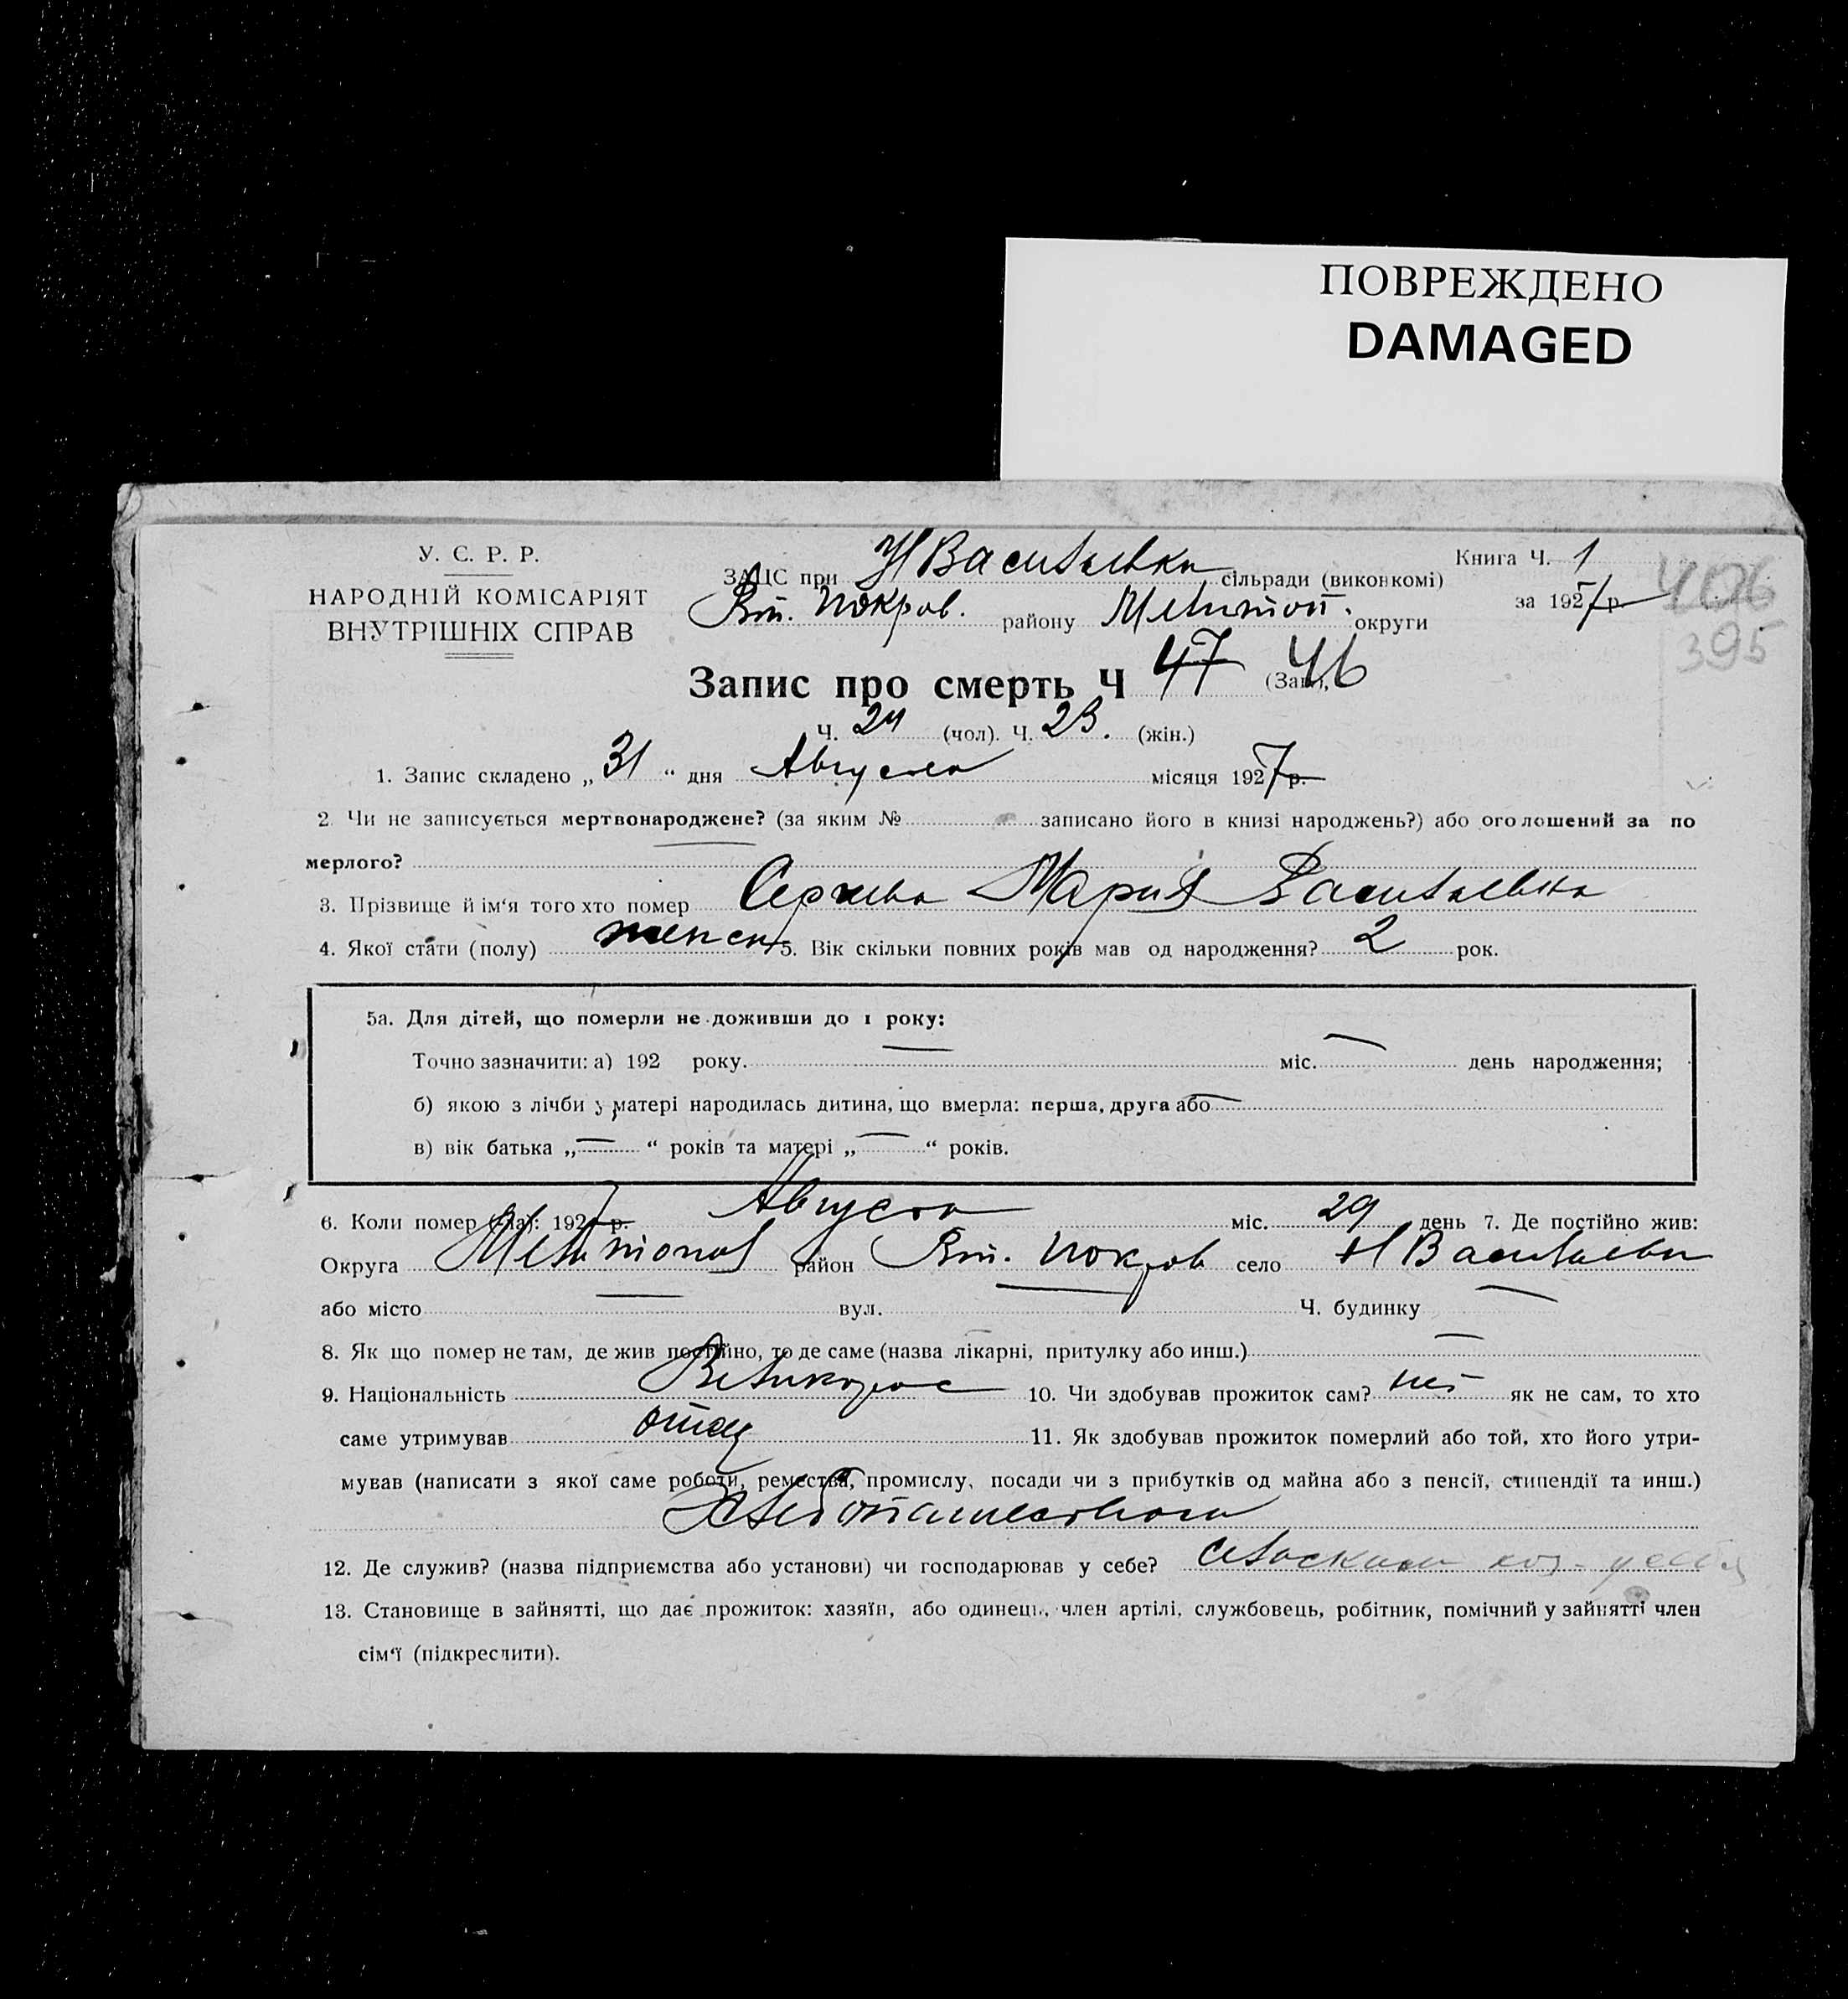 ПОВРЕЖДЕНО
DAMAGED
У. С. Р. Р.
НАРОДНІЙ КОМІСАРІЯТ
ВНУТРІШНІХ СПРАВ
ЗАЦС при Н Васильевка сільради (виконкомі)
Вт. Покров. району Мелитоп. округи
Книга Ч. 1
за 1927 р.
406
395
Запис про смерть Ч 47 (Заг., 46
Ч. 24 (чол). Ч. 23. (жін.)
1. Запис складено „ 31 “ дня Августа місяця 1927 р.
2. Чи не записується мертвонароджене? (за яким № записано його в книзі народжень?) або оголошений за по
мерлого?
3. Прізвище й ім‘я того хто помер Сергиева Мария Васильевна
4. Якої стати (полу) женск 5. Вік скільки повних років мав од народження? 2 рок.
5а. Для дітей, що померли не доживши до 1 року:
Точно зазначити: а) 192 року. міс. день народження;
б) якою з лічби у матері народилась дитина, що вмерла: перша, друга або
в) вік батька „ — “ років та матері „ — “ років.
6. Коли помер (-ла): 1927 р. Августа міс. 29 день 7. Де постійно жив:
Округа Мелитопол район Вт. Покров село Н Васильевк
або місто — вул. — Ч. будинку —
8. Як що помер не там, де жив постійно, то де саме (назва лікарні, притулку або инш.) —
9. Національність Великорос 10. Чи здобував прожиток сам? нет як не сам, то хто
саме утримував отец 11. Як здобував прожиток померлий або той, хто його утри-
мував (написати з якої саме роботи, ремества, промислу, посади чи з прибутків од майна або з пенсії, стипендії та инш.)
Хлебопашеством
12. Де служив? (назва підприємства або установи) чи господарював у себе? сельским хоз- у себя
13. Становище в зайнятті, що дає прожиток: хазяїн, або одинець, член артілі, службовець, робітник, помічний у зайнятті член
сім‘ї (підкреслити).